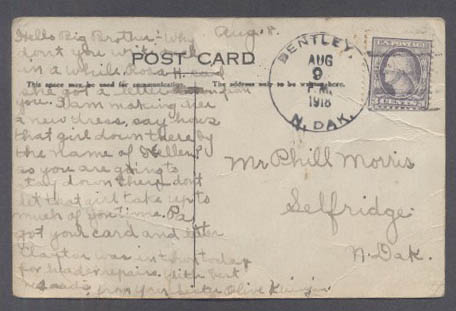 Aug. 8.
Hello Big Brother:- Why
don't you write
in a while. Rosa H. said
she got a from
you. I am making her
a new dress, say hows
that girl down there by
the name of
so you are going to
stay down there dont
let that girl take up to
much of your time. Pa
got your card and
was in today
for repairs. With best
from your sister Olive
POST CARD
This space may be used for communication.
The address only to be written here.
BENTLEY.
AUG
9
P.M.
1918
N. DAK.
U.S. POSTAGE
3 CENTS 3
Mr Phill Morris
Selfridge.
N. Dak.